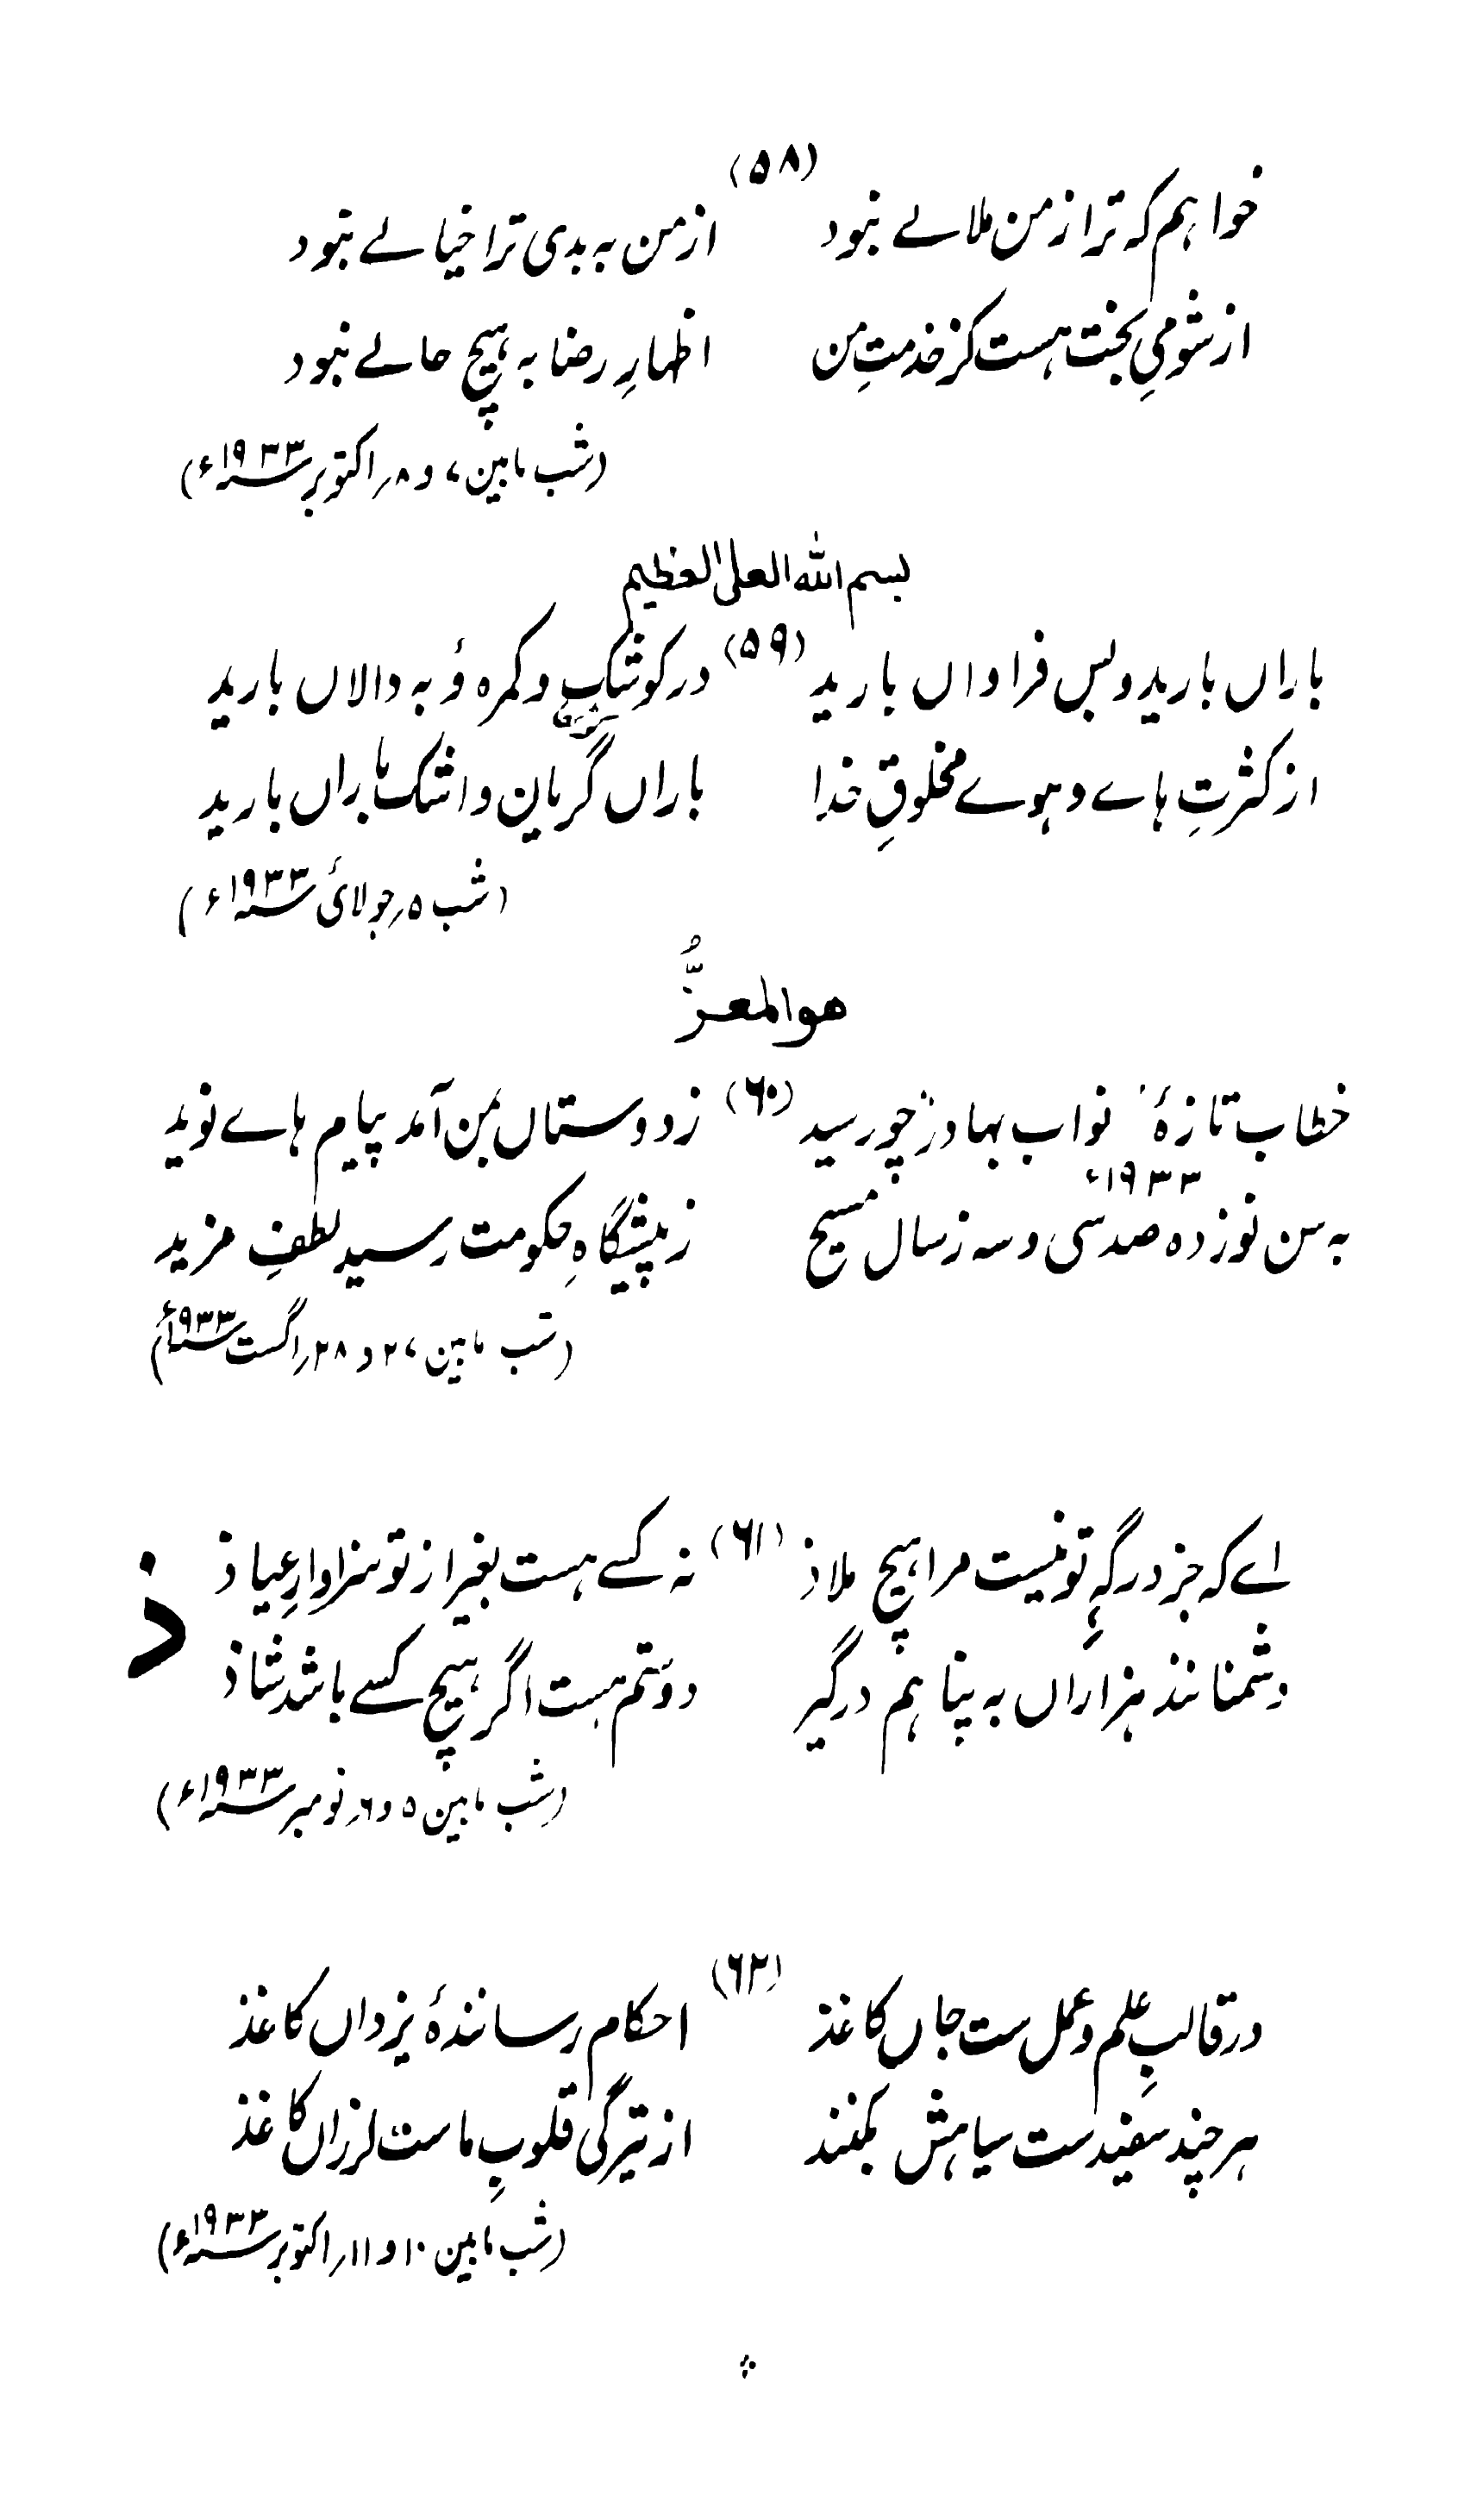 (۵۸)
خواہم کہ ترا ز من ملالے نبود از من بہ بدی ترا خیالے نبود
از شومیِ بخت ہست کز خدمتِ من اظہارِ رضا بہ ہیچ حالے نبود
(شب مابین ۷ و ۸ر اکتوبر ۱۹۳۳ء)
بسم اللہ العلی العظیم
(۵۹)
باراں بارید و بس فراواں بارید در کوشک و کرہ و بہ دالاں بارید
از کثرتِ ہاے و ہوے مخلوقِ خدا باراں گریان و اشکباراں بارید
(شب ۵ر جولائی ۱۹۳۳ء)
ھوالمعزُّ
(۶۰)
خطاب تازۂ نواب بہادر چو رسید ز دوستاں بمن آمد پیام ہاے نوید
۱۹۳۳ء
بہ سن نوزدہ صد سی و سہ ز سال مسیح ز پیشگاہِ حکومت رسید لطفِ مزید
(شب مابین ۲۷ و ۲۸ر اگست ۱۹۳۳ء)
ذ
(۶۱)
اے کہ جز درگہِ تو نیست مرا ہیچ ملاذ نہ کسے ہست بغیر از تو سزاوارِ عیاذ
دشمنانند ہزاراں بہ پناہم درگیر دوستم ہست اگر ہیچ کسے باشد شاذ
(شب مابین ۵ و ۶ر نومبر ۱۹۳۳ء)
(۶۲)
در قالبِ علم و عمل ست جاں کاغذ احکام رسانندۂ یزداں کاغذ
ہر چند سفیدست سیاہش بکنند از تیرگیِ قلوبِ ماست لرزاں کاغذ
(شب مابین ۱۰ و ۱۱ر اکتوبر ۱۹۳۳ء)